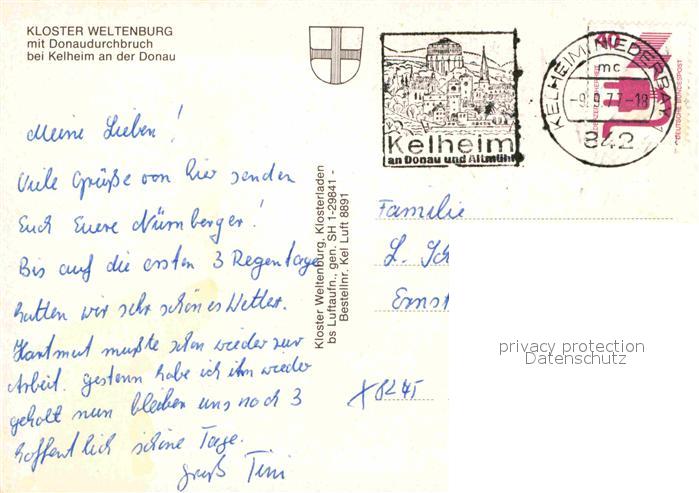 KLOSTER WELTENBURG
mit Donaudurchbruch
bei Kelheim an der Donau
Meine Lieben!
Viele Grüße von hier senden
Euch Euere Nürnberger!
Bis auf die ersten 3 Regentage
hatten wir sehr schönes Wetter.
Hartmut mußte schon wieder zur
Arbeit. gestern habe ich ihn wieder
geholt nun bleiben uns noch 3
hoffentlich schöne Tage.
gruß Tini
Kloster Weltenburg, Klosterladen
bs Luftaufn., gen. SH 1-29841 -
Bestellnr. Kel Luft 8891
Kelheim
an Donau und Altmühl
KELHEIM, NIEDERBAY
mc
-9.9.77-18
842
40
DEUTSCHE BUNDESPOST
Familie
L. Sch
Ernst
8245
privacy protection
Datenschutz